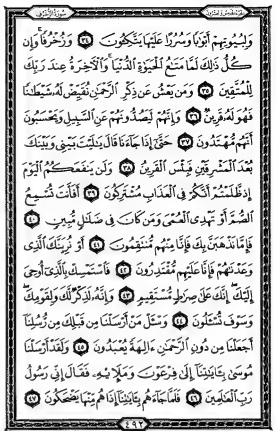 سُورَةُ الزُّخْرُفِ
وَلِبُيُوتِهِمْ أَبْوَٰبًا وَسُرُرًا عَلَيْهَا يَتَّكِـُٔونَ ٣٤ وَزُخْرُفًا وَإِن
كُلُّ ذَٰلِكَ لَمَّا مَتَٰعُ ٱلْحَيَوٰةِ ٱلدُّنْيَا وَٱلْءَاخِرَةُ عِندَ رَبِّكَ
لِلْمُتَّقِينَ ٣٥ وَمَن يَعْشُ عَن ذِكْرِ ٱلرَّحْمَٰنِ نُقَيِّضْ لَهُۥ شَيْطَٰنًا
فَهُوَ لَهُۥ قَرِينٌ ٣٦ وَإِنَّهُمْ لَيَصُدُّونَهُمْ عَنِ ٱلسَّبِيلِ وَيَحْسَبُونَ
أَنَّهُم مُّهْتَدُونَ ٣٧ حَتَّىٰٓ إِذَا جَآءَنَا قَالَ يَٰلَيْتَ بَيْنِى وَبَيْنَكَ
بُعْدَ ٱلْمَشْرِقَيْنِ فَبِئْسَ ٱلْقَرِينُ ٣٨ وَلَن يَنفَعَكُمُ ٱلْيَوْمَ
إِذ ظَّلَمْتُمْ أَنَّكُمْ فِى ٱلْعَذَابِ مُشْتَرِكُونَ ٣٩ أَفَأَنتَ تُسْمِعُ
ٱلصُّمَّ أَوْ تَهْدِى ٱلْعُمْىَ وَمَن كَانَ فِى ضَلَٰلٍ مُّبِينٍ ٤٠
فَإِمَّا نَذْهَبَنَّ بِكَ فَإِنَّا مِنْهُم مُّنتَقِمُونَ ٤١ أَوْ نُرِيَنَّكَ ٱلَّذِى
وَعَدْنَٰهُمْ فَإِنَّا عَلَيْهِم مُّقْتَدِرُونَ ٤٢ فَٱسْتَمْسِكْ بِٱلَّذِىٓ أُوحِىَ
إِلَيْكَ إِنَّكَ عَلَىٰ صِرَٰطٍ مُّسْتَقِيمٍ ٤٣ وَإِنَّهُۥ لَذِكْرٌ لَّكَ وَلِقَوْمِكَ
وَسَوْفَ تُسْـَٔلُونَ ٤٤ وَسْـَٔلْ مَنْ أَرْسَلْنَا مِن قَبْلِكَ مِن رُّسُلِنَآ
أَجَعَلْنَا مِن دُونِ ٱلرَّحْمَٰنِ ءَالِهَةً يُعْبَدُونَ ٤٥ وَلَقَدْ أَرْسَلْنَا
مُوسَىٰ بِـَٔايَٰتِنَآ إِلَىٰ فِرْعَوْنَ وَمَلَإِي۟هِۦ فَقَالَ إِنِّى رَسُولُ
رَبِّ ٱلْعَٰلَمِينَ ٤٦ فَلَمَّا جَآءَهُم بِـَٔايَٰتِنَآ إِذَا هُم مِّنْهَا يَضْحَكُونَ ٤٧
٤٩٢